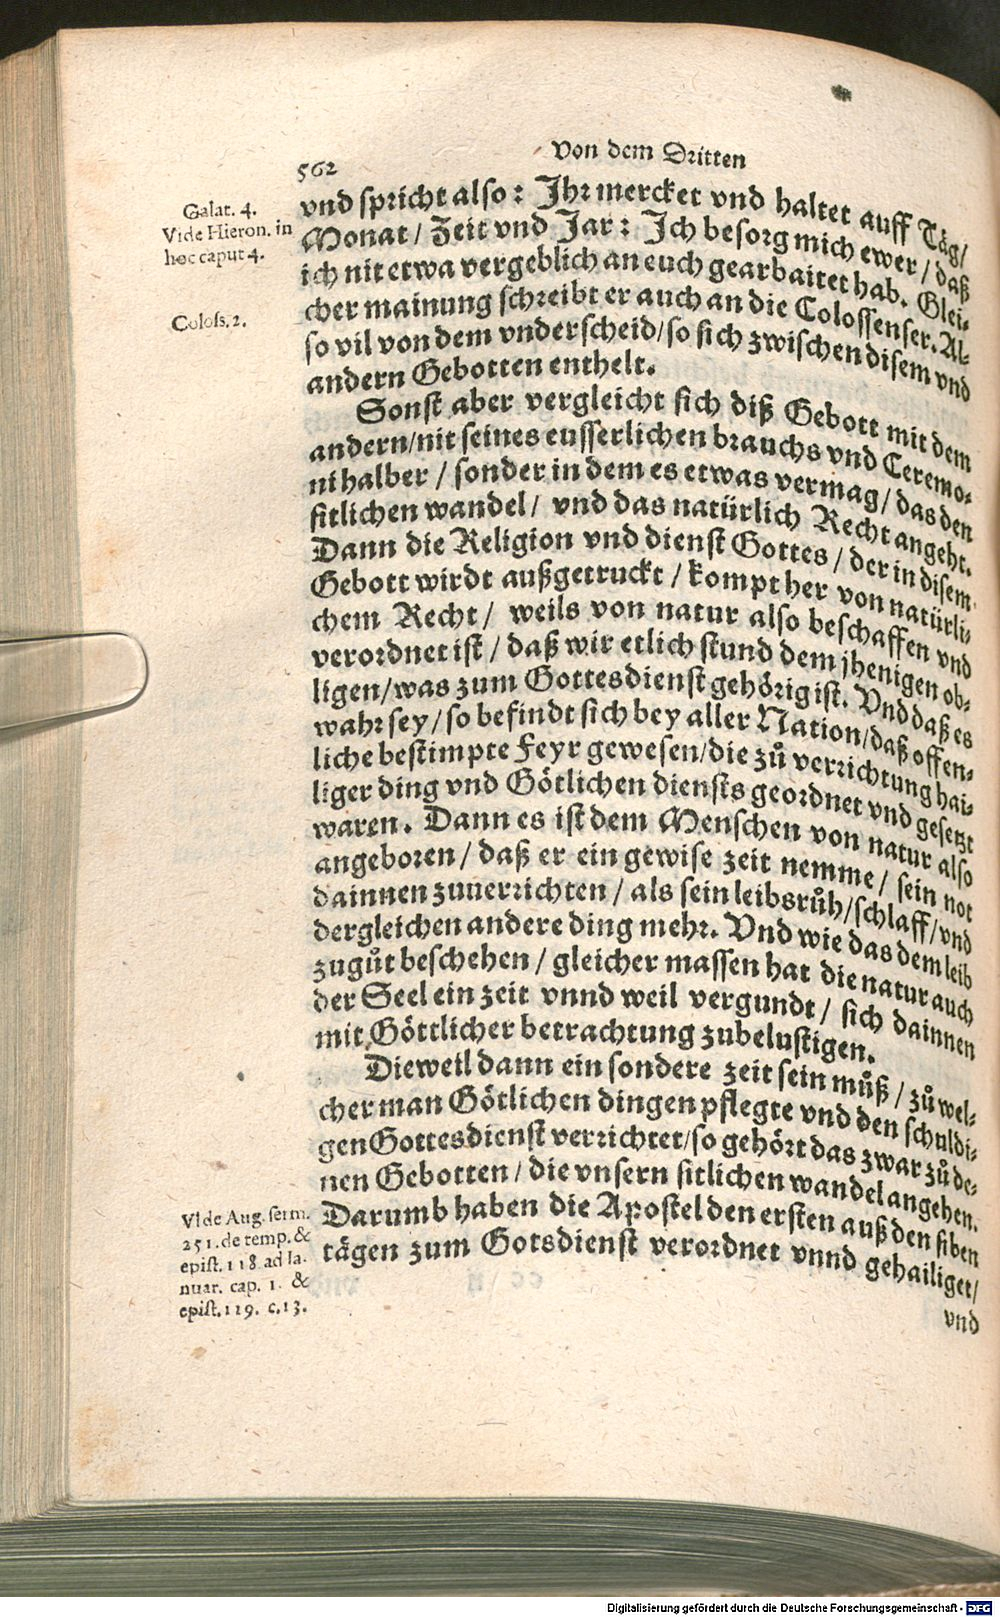 562
Von dem Dritten
vnd spricht also: Ihr mercket vnd haltet auff Täg/
Monat/ Zeit vnd Jar: Ich besorg mich ewer/ daß
ich nit etwa vergeblich an euch gearbaitet hab. Glei-
cher mainung schreibt er auch an die Colossenser. Al-
so vil von dem vnderscheid/ so sich zwischen disem vnd
andern Gebotten enthelt.
Sonst aber vergleicht sich diß Gebott mit dem
andern/ nit seines eusserlichen brauchs vnd Ceremo-
ni halber/ sonder in dem es etwas vermag/ das den
sitlichen wandel/ vnd das natürlich Recht angeht.
Dann die Religion vnd dienst Gottes/ der in disem
Gebott wirdt außgetruckt/ kompt her von natürli-
chem Recht/ weils von natur also beschaffen vnd
verordnet ist/ daß wir etlich stund dem jhenigen ob-
ligen/ was zum Gottesdienst gehörig ist. Vnd daß es
wahr sey/ so befindt sich bey aller Nation/ daß offen-
liche bestimpte Feyr gewesen/ die zů verrichtung hai-
liger ding vnd Götlichen diensts geordnet vnd gesetzt
waren. Dann es ist dem Menschen von natur also
angeboren/ daß er ein gewise zeit nemme/ sein not
dainnen zuuerrichten/ als sein leibsrůh/ schlaff/ vnd
dergleichen andere ding mehr. Vnd wie das dem leib
zugůt beschehen/ gleicher massen hat die natur auch
der Seel ein zeit vnnd weil vergundt/ sich dainnen
mit Göttlicher betrachtung zubelustigen.
Dieweil dann ein sondere zeit sein můß/ zů wel-
cher man Götlichen dingen pflegte vnd den schuldi-
gen Gottesdienst verrichtet/ so gehört das zwar zů de-
nen Gebotten/ die vnsern sitlichen wandel angehen.
Darumb haben die Apostel den ersten auß den siben
tägen zum Gotsdienst verordnet vnnd gehailiget/
vnd
Galat. 4.
Vide Hieron. in
hoc caput 4.
Coloss. 2.
Vide Aug. serm.
251. de temp. &
epist. 118. ad Ia-
nuar. cap. 1. &
epist. 119. c. 13.
Digitalisierung gefördert durch die Deutsche Forschungsgemeinschaft - DFG